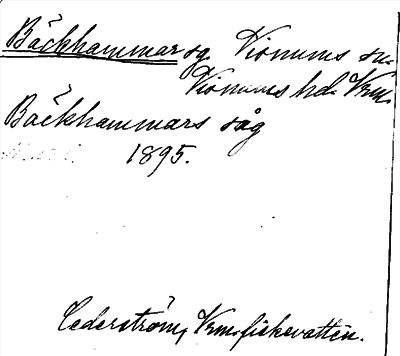 Bäckhammar sg Visnums sn.
Visnums hd. Vrm.
Bäckhammars såg
1895.
Cederström, Vrm. fiskevatten.